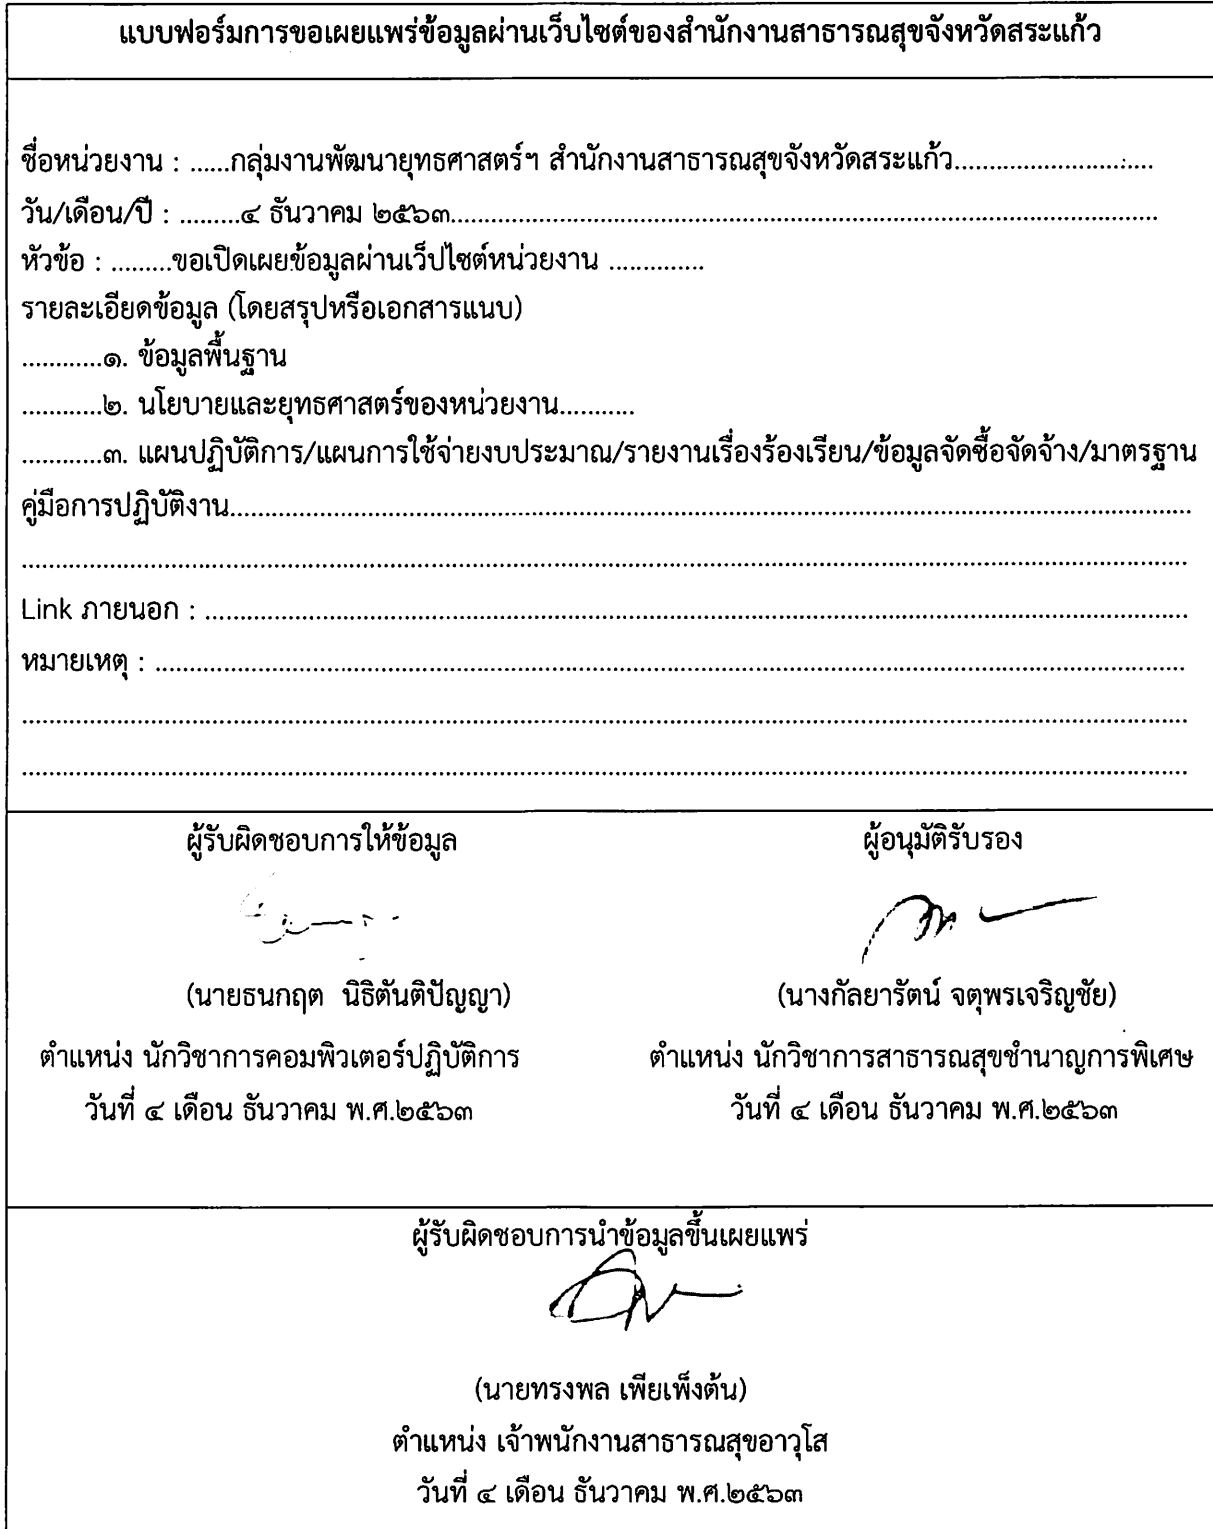 แบบฟอร์มการขอเผยแพร่ข้อมูลผ่านเว็บไซต์ของสำนักงานสาธารณสุขจังหวัดสระแก้ว
ชื่อหน่วยงาน : ......กลุ่มงานพัฒนายุทธศาสตร์ฯ สำนักงานสาธารณสุขจังหวัดสระแก้ว..............................
วัน/เดือน/ปี : .........๔ ธันวาคม ๒๕๖๓...............................................................................
หัวข้อ : .........ขอเปิดเผยข้อมูลผ่านเว็ปไซต์หน่วยงาน ..............
รายละเอียดข้อมูล (โดยสรุปหรือเอกสารแนบ)
............๑. ข้อมูลพื้นฐาน
............๒. นโยบายและยุทธศาสตร์ของหน่วยงาน...........
............๓. แผนปฏิบัติการ/แผนการใช้จ่ายงบประมาณ/รายงานเรื่องร้องเรียน/ข้อมูลจัดซื้อจัดจ้าง/มาตรฐาน
คู่มือการปฏิบัติงาน...............................................................................
Link ภายนอก : ...............................................................................
หมายเหตุ : ...............................................................................
ผู้รับผิดชอบการให้ข้อมูล
(นายธนกฤต นิธิตันติปัญญา)
ตำแหน่ง นักวิชาการคอมพิวเตอร์ปฏิบัติการ
วันที่ ๔ เดือน ธันวาคม พ.ศ.๒๕๖๓
ผู้อนุมัติรับรอง
(นางกัลยารัตน์ จตุพรเจริญชัย)
ตำแหน่ง นักวิชาการสาธารณสุขชำนาญการพิเศษ
วันที่ ๔ เดือน ธันวาคม พ.ศ.๒๕๖๓
ผู้รับผิดชอบการนำข้อมูลขึ้นเผยแพร่
(นายทรงพล เพียเพ็งต้น)
ตำแหน่ง เจ้าพนักงานสาธารณสุขอาวุโส
วันที่ ๔ เดือน ธันวาคม พ.ศ.๒๕๖๓